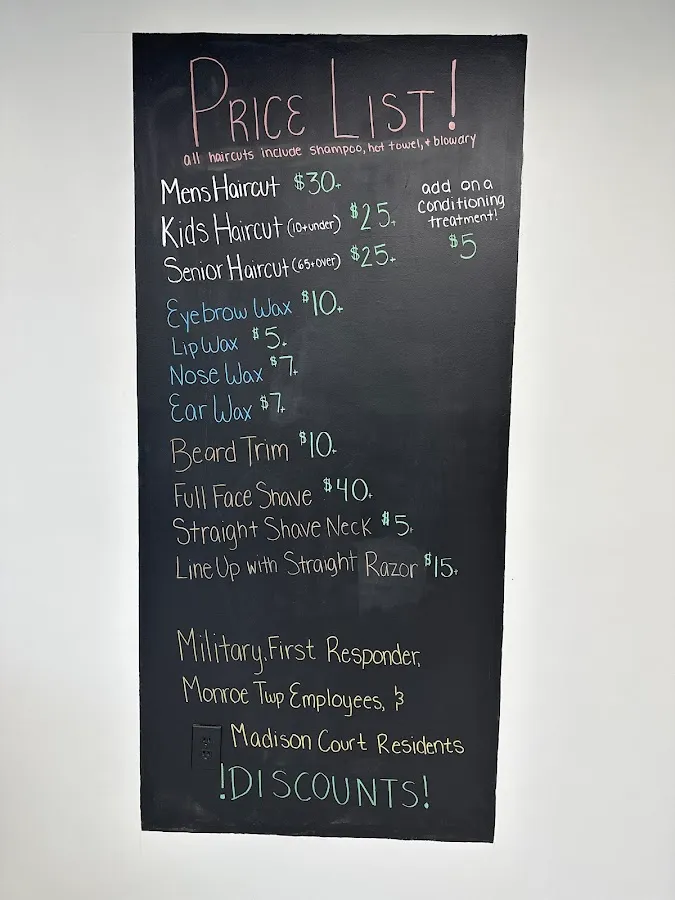 PRICE LIST!
all haircuts include shampoo, hot towel, + blowdry
Mens Haircut $30+
Kids Haircut (10+under) $25+
Senior Haircut (65+over) $25+
add on a
conditioning
treatment!
$5
Eyebrow Wax $10+
Lip Wax $5+
Nose Wax $7+
Ear Wax $7+
Beard Trim $10+
Full Face Shave $40+
Straight Shave Neck $5+
Line Up with Straight Razor $15+
Military, First Responder,
Monroe Twp Employees, &
Madison Court Residents
!DISCOUNTS!